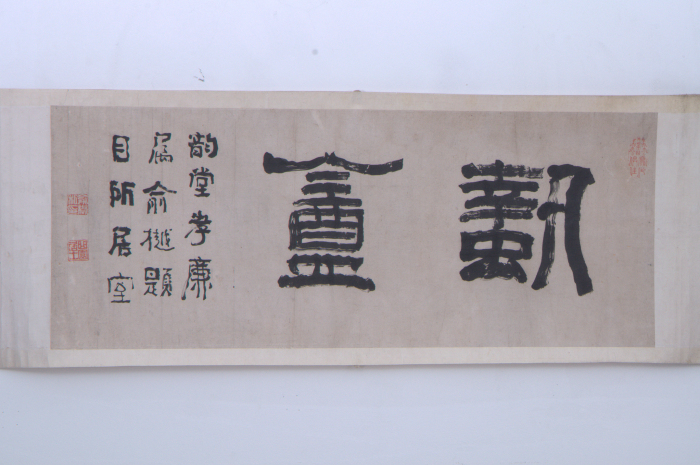 蟄盦
韵堂孝廉
属俞樾題
目所居室